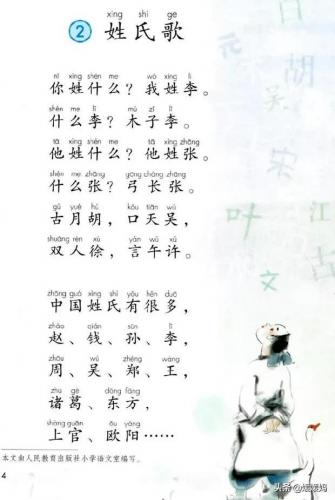 xìng shì gē
2 姓氏歌
nǐ xìng shén me wǒ xìng lǐ
你姓什么？我姓李。
shén me lǐ mù zǐ lǐ
什么李？木子李。
tā xìng shén me tā xìng zhāng
他姓什么？他姓张。
shén me zhāng gōng cháng zhāng
什么张？弓长张。
gǔ yuè hú kǒu tiān wú
古月胡，口天吴，
shuāng rén xú yán wǔ xǔ
双人徐，言午许。
zhōng guó xìng shì yǒu hěn duō
中国姓氏有很多，
zhào qián sūn lǐ
赵、钱、孙、李，
zhōu wú zhèng wáng
周、吴、郑、王，
zhū gě dōng fāng
诸葛、东方，
shàng guān ōu yáng
上官、欧阳……
本文由人民教育出版社小学语文室编写。
4
胡
元
吴
宋
叶
江
古
文
头条